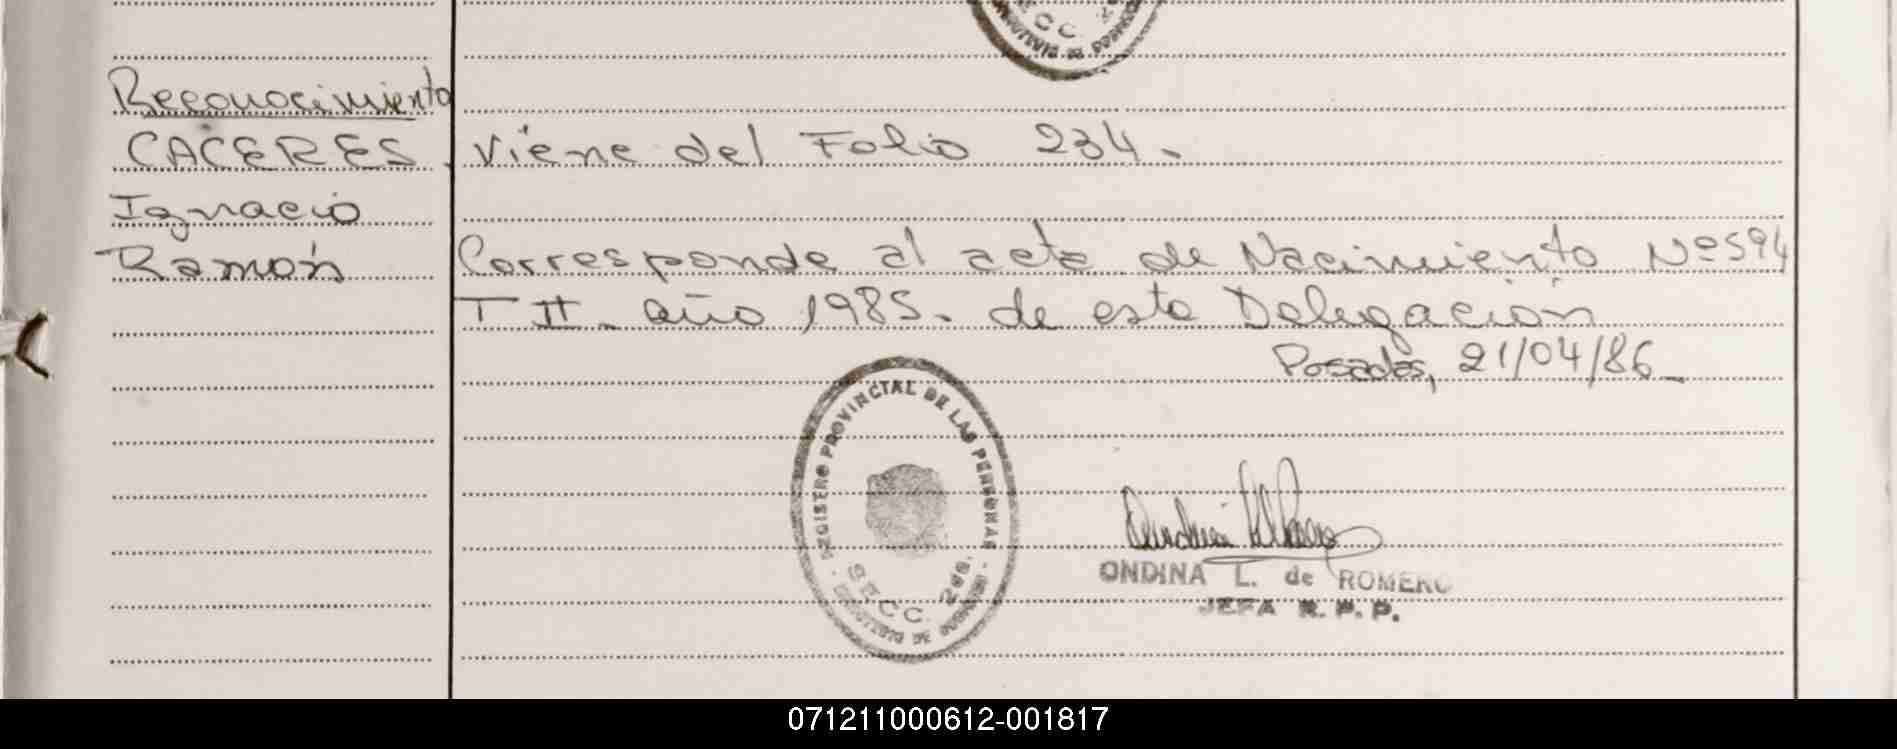 Reconocimiento
CACERES
Ignacio
Ramón
Viene del Folio 234.
Corresponde al acta de Nacimiento Nº 594
T II. año 1985. de esta Delegación
Posadas, 21/04/86
REGISTRO PROVINCIAL DE LAS PERSONAS
SECC.
ONDINA L. de ROMERO
JEFA R. P. P.
071211000612-001817